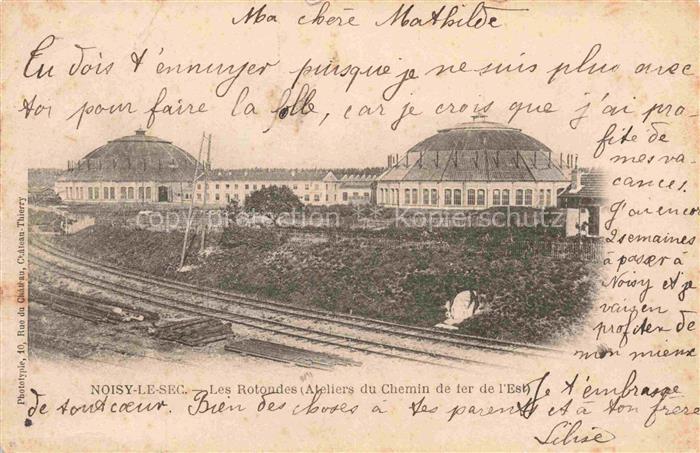 Ma chère Mathilde
Tu dois t'ennuyer puisque je ne suis plus avec
toi pour faire la folle, car je crois que j'ai pro-
fite de
mes va-
cances.
J'ai encore
2 semaines
à passer à
Noisy et je
vais en
profiter de
mon mieux
copyright-protection copyright-Schutz
Phototypie, 10, Rue du Château, Château-Thierry
NOISY-LE-SEC. — Les Rotondes (Ateliers du Chemin de fer de l'Est)
Je t'embrasse
de tout cœur. Bien des choses à tes parents et à ton frère